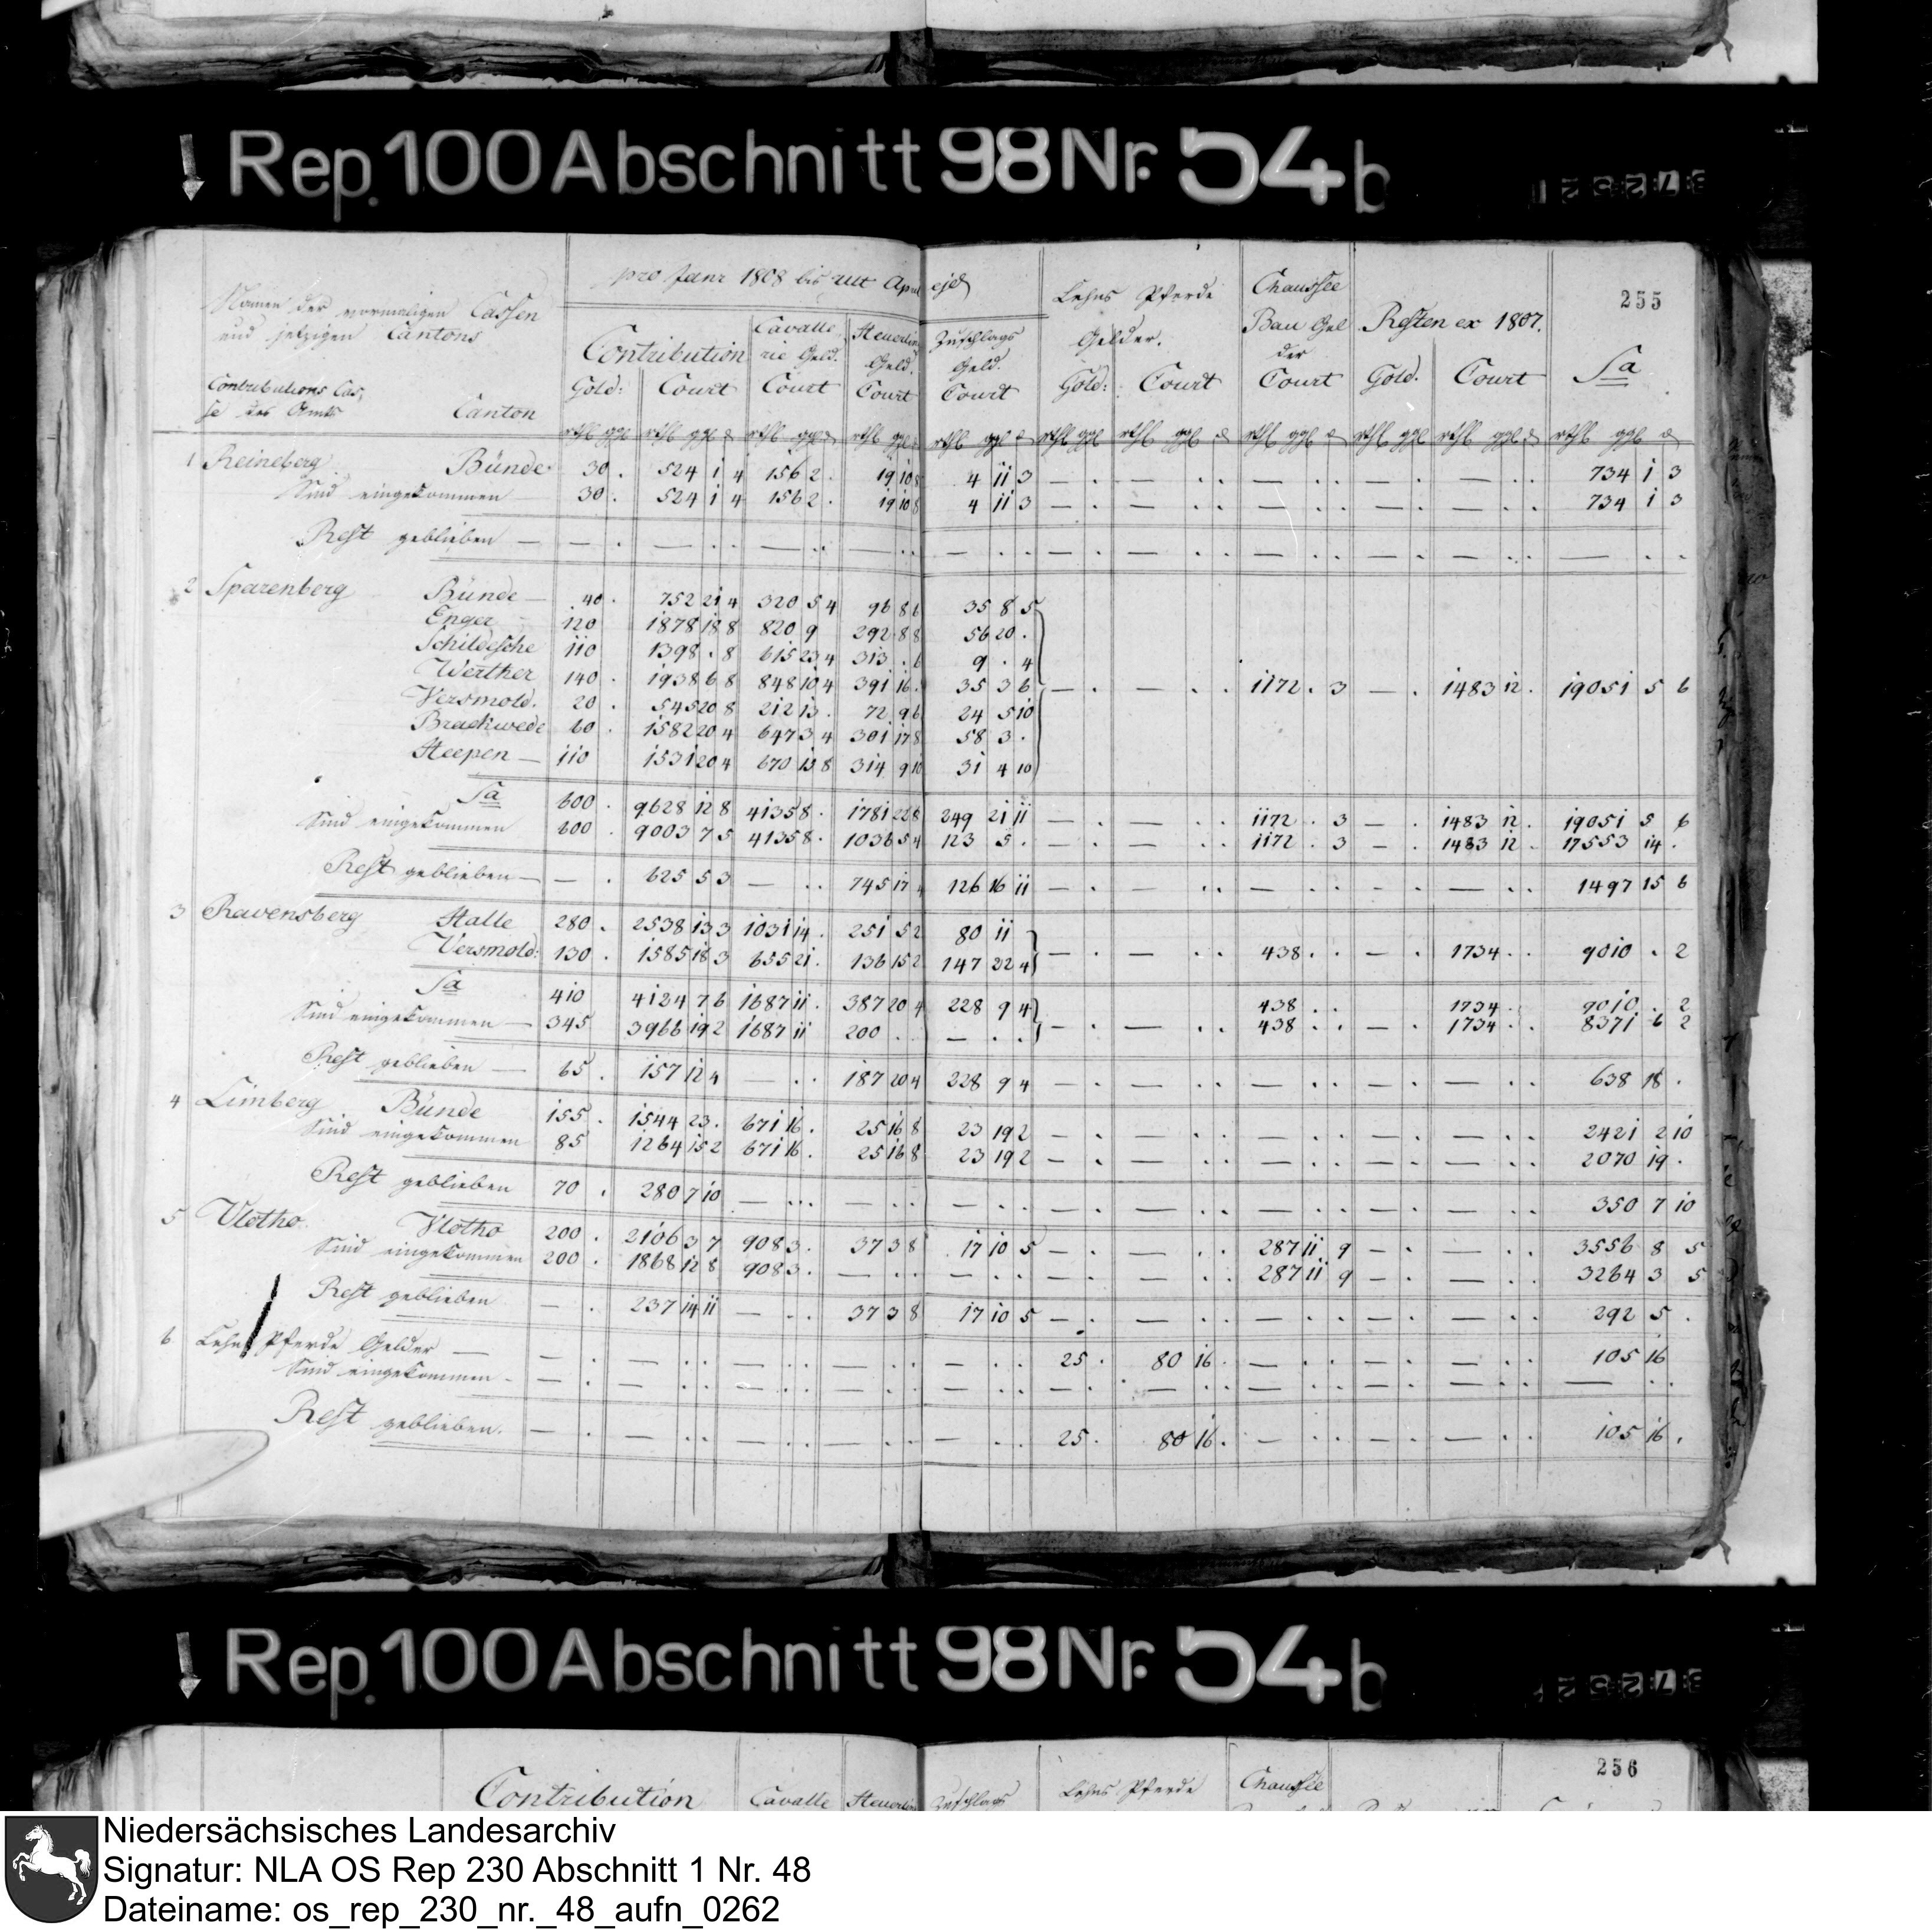 Rep. 100 Abschnitt 98 Nr. 54b
37252 1
255
pro Janr 1808 bis ult April ejd
Namen der vormaligen Cassen
und jetzigen Cantons
Contributions Cas,
se des Amts Canton
Contribution Cavalle rie Geld. Heuerlin Geld. Zuschlags Geld. Lehns Pferde Gelder. Chaussee Bau Gel der Resten ex 1807. Sa
Gold: Court Court Court Court Gold: Court Court Gold. Court
rthl ggl rthl ggl d rthl ggl d rthl ggl d rthl ggl d rthl ggl rthl ggl d rthl ggl d rthl ggl rthl ggl d rthl ggl d
1 Reineberg Bünde 30 . 524 1 4 156 2 . 19 10 8 4 11 3 — . — . . — . . — . — . . 734 1 3
Sind eingekommen 30 . 524 1 4 156 2 . 19 10 8 4 11 3 — . — . . — . . — . — . . 734 1 3
Rest geblieben — — . — . . — . . — . . — . . — . — . . — . . — . — . . — . .
2 Sparenberg Bünde — 40 . 752 21 4 320 5 4 96 8 6 35 8 5
Enger 120 1878 18 8 820 9 292 8 8 56 20 .
Schildesche 110 1398 . 8 615 23 4 313 . 6 9 . 4
Werther 140 . 1938 6 8 848 10 4 391 16 . 35 3 6 — . — . . 1172 . 3 — . 1483 12 . 19051 5 6
Versmold. 20 . 545 20 8 212 13 . 72 9 6 24 5 10
Brackwede 60 . 1582 20 4 647 3 4 301 17 8 58 3 .
Heepen — 110 1531 20 4 670 13 8 314 9 10 31 4 10
Sa 600 . 9628 12 8 4135 8 . 1781 22 8 249 21 11 — . — . . 1172 . 3 — . 1483 12 . 19051 5 6
Sind eingekommen 600 . 9003 7 5 4135 8 . 1036 5 4 123 5 . — . — . . 1172 . 3 — . 1483 12 . 17553 14 .
Rest geblieben — — . 625 5 3 — . . 745 17 4 126 16 11 — . — . . — . . — . — . . 1497 15 6
3 Ravensberg Halle 280 . 2538 13 3 1031 14 . 251 5 2 80 11
Versmold: 130 . 1585 18 3 655 21 . 136 15 2 147 22 4 — . — . . 438 . . — . 1734 . . 9010 . 2
Sa 410 4124 7 6 1687 11 . 387 20 4 228 9 4 438 . . 1734 . 9010 . 2
Sind eingekommen — 345 3966 19 2 1687 11 200 . . — . . — . — . . 438 . . — . 1734 . . 8371 6 2
Rest geblieben — 65 . 157 12 4 — . . 187 20 4 228 9 4 — . — . . — . . — . — . . 638 18 .
4 Limberg Bünde 155 . 1544 23 . 671 16 . 25 16 8 23 19 2 — . — . . — . . — . — . . 2421 2 10
Sind eingekommen 85 1264 15 2 671 16 . 25 16 8 23 19 2 — . — . . — . . — . — . . 2070 19 .
Rest geblieben 70 . 280 7 10 — . . — . . — . . — . — . . — . . — . — . . 350 7 10
5 Vlotho Vlotho 200 . 2106 3 7 908 3 . 37 3 8 17 10 5 — . — . . 287 11 9 — . — . . 3556 8 5
Sind eingekommen 200 . 1868 12 8 908 3 . — . . — . . — . — . . 287 11 9 — . — . . 3264 3 5
Rest geblieben — . 237 14 11 — . . 37 3 8 17 10 5 — . — . . — . . — . — . . 292 5 .
6 Lehn Pferde Gelder — — . — . . — . . — . . — . . 25 . 80 16 . — . . — . — . . 105 16
Sind eingekommen — . — . . — . . — . . — . . — . — . . — . . — . — . . — . .
Rest geblieben. — . — . . — . . — . . — . . 25 . 80 16 . — . . — . — . . 105 16 .
Rep. 100 Abschnitt 98 Nr. 54b
256
Contribution Cavalle Heuerlin Zuschlags Lehns Pferde Chaussee
Niedersächsisches Landesarchiv
Signatur: NLA OS Rep 230 Abschnitt 1 Nr. 48
Dateiname: os_rep_230_nr._48_aufn_0262